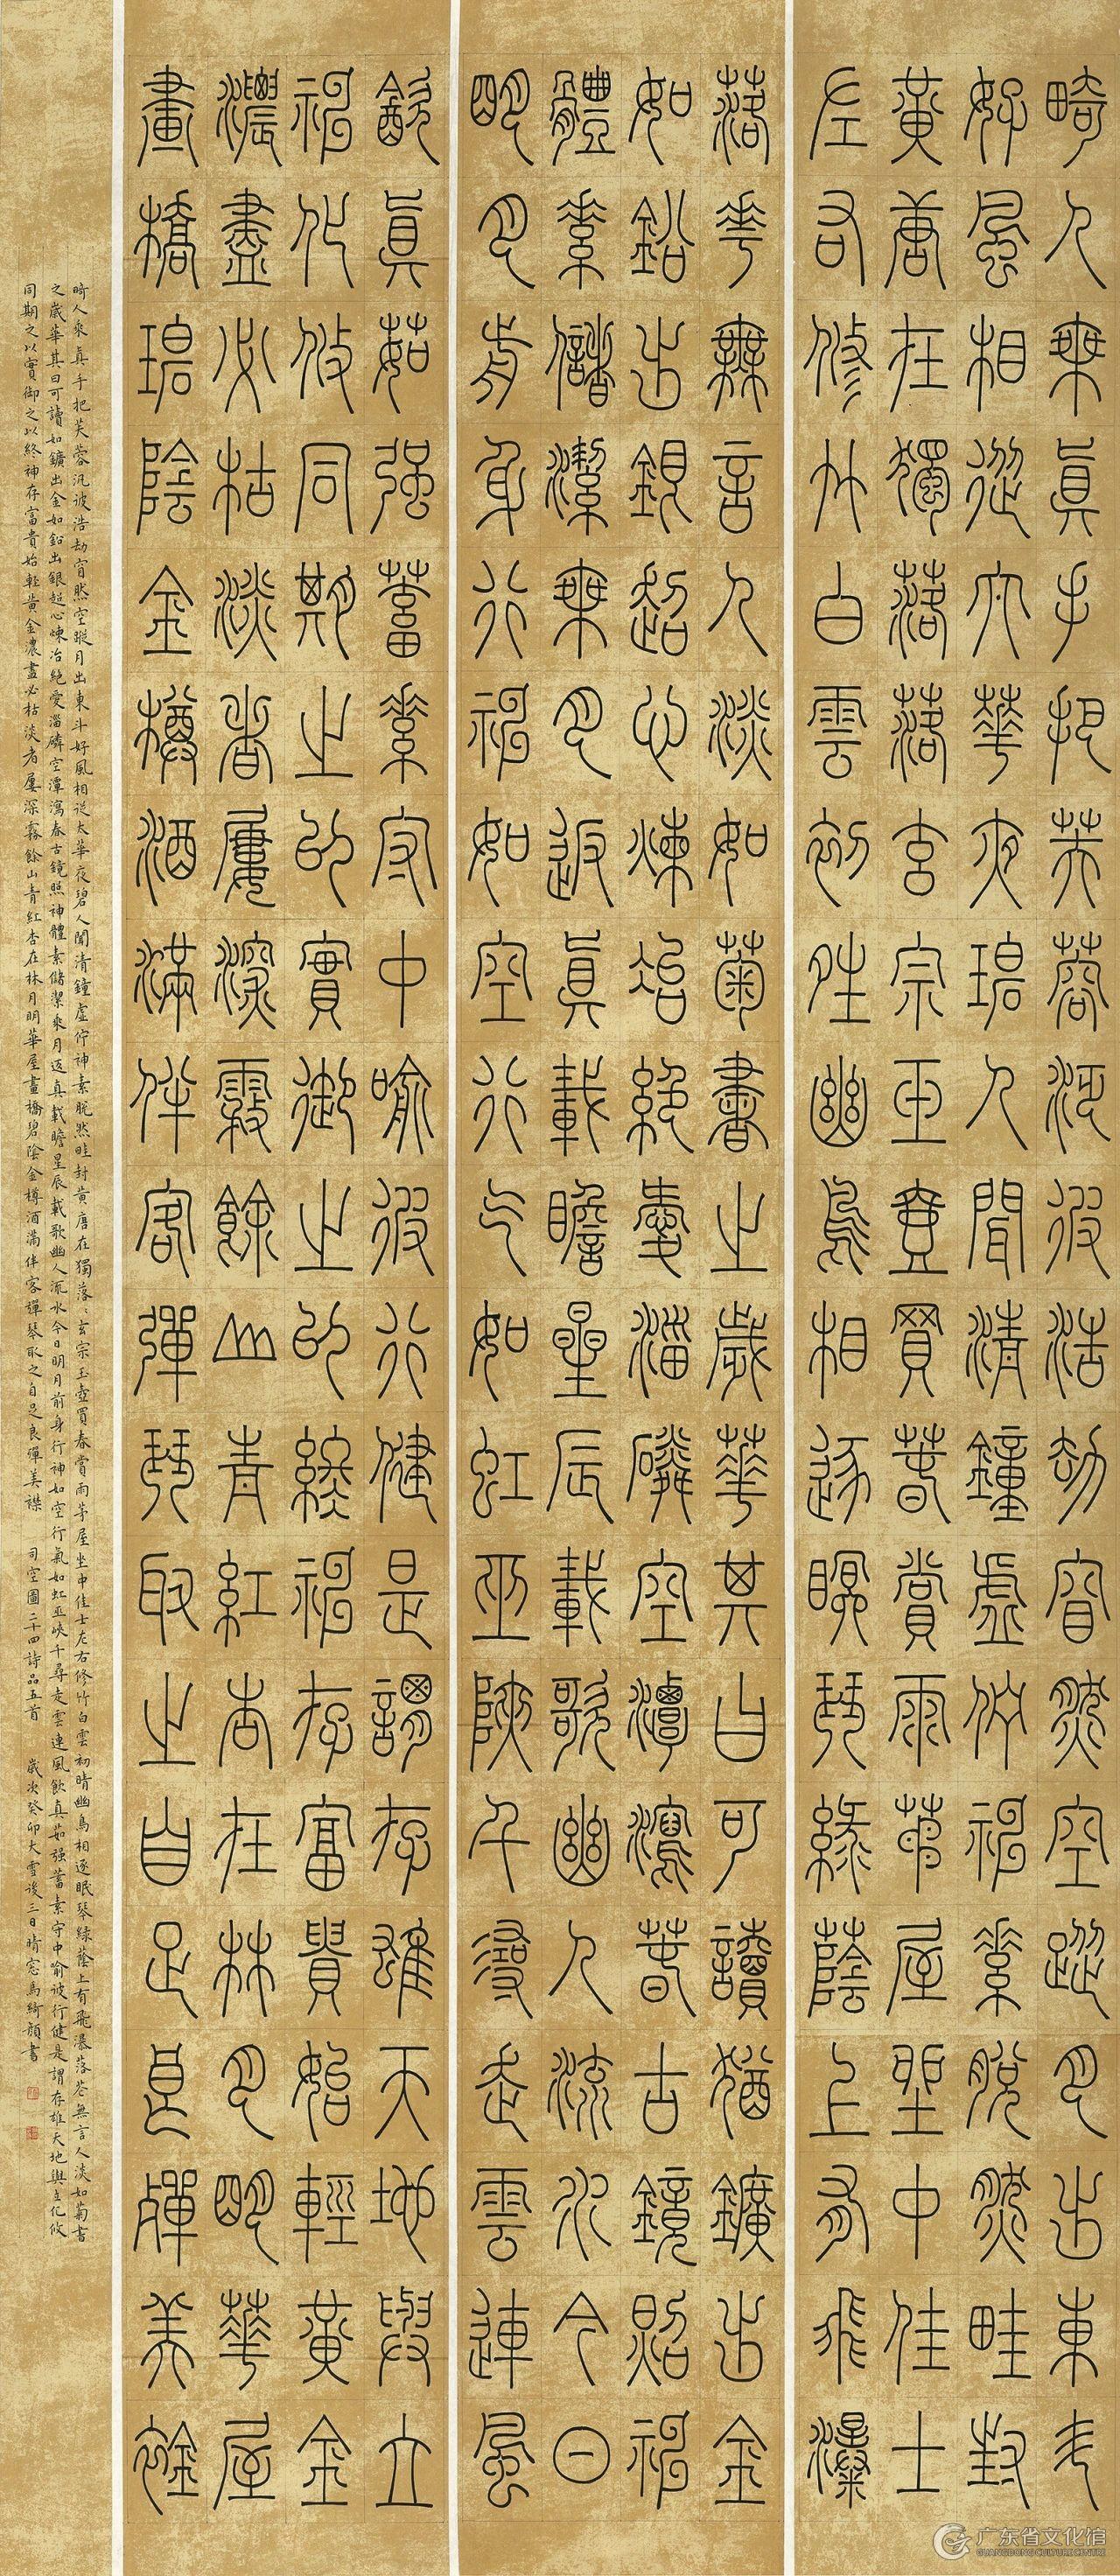 畸人乘真手把芙蓉汎彼浩劫窅然空蹤月出東斗
好風相從太華夜碧人聞清鐘虛佇神素脫然畦封
黃唐在獨落落玄宗玉壺買春賞雨茅屋坐中佳士
左右修竹白雲初晴幽鳥相逐眠琴綠蔭上有飛瀑
落花無言人淡如菊書之歲華其曰可讀猶鑛出金
如鉛出銀超心煉冶絕愛淄磷空潭瀉春古鏡照神
體素儲潔乘月返真載瞻星辰載歌幽人流水今日
明月前身行神如空行氣如虹巫峽千尋走雲連風
飲真茹强蓄素守中喻彼行健是謂存雄天地與立
神化攸同期之以實御之以終神存富貴始輕黃金
濃盡必枯淡者屢深霧餘山青紅杏在林月明華屋
畫橋碧陰金樽酒滿伴客彈琴取之自足良殫美襟
畸人乘真手把芙蓉汎彼浩劫窅然空蹤月出東斗好風相從太華夜碧人聞清鐘虛佇神素脫然畦封黃唐在獨落〻玄宗玉壺買春賞雨茅屋坐中佳士左右修竹白雲初晴幽鳥相逐眠琴綠蔭上有飛瀑落花無言人淡如菊書
之歲華其曰可讀如鑛出金如鉛出銀超心煉冶絕愛淄磷空潭瀉春古鏡照神體素儲潔乘月返真載瞻星辰載歌幽人流水今日明月前身行神如空行氣如虹巫峽千尋走雲連風飲真茹强蓄素守中喻彼行健是謂存雄天地與立化攸
同期之以實御之以終神存富貴始輕黃金濃盡必枯淡者屢深霧餘山青紅杏在林月明華屋畫橋碧陰金樽酒滿伴客彈琴取之自足良殫美襟 司空圖二十四詩品五首 歲次癸卯大雪後三日晴窓馬綺顏書
广东省文化馆
GUANGDONG CULTURE CENTRE